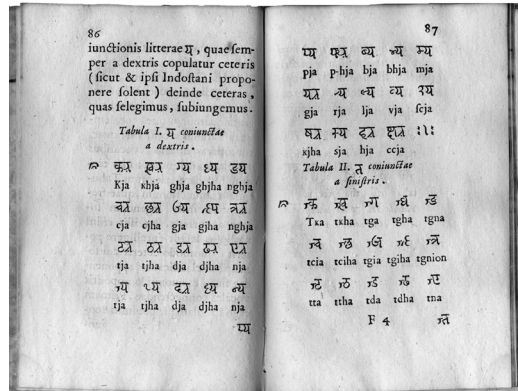 86
iunctionis litterae य, quae sem-
per a dextris copulatur ceteris
(sicut & ipsi Indostani propo-
nere solent) deinde ceteras,
quas selegimus, subiungemus.
Tabula I. य coniunctae
a dextris.
क्य ख्य ग्य घ्य ङ्य
Kja khja ghja ghjha nghja
च्य छ्य ज्य झ्य ञ्य
cja cjha gja gjha nghja
ट्य ठ्य ड्य ढ्य ण्य
tja tjha dja djha nja
त्य थ्य द्य ध्य न्य
tja tjha dja djha nja
प्य
87
प्य फ्य ब्य भ्य म्य
pja p-hja bja bhja mja
य्य र्य ल्य व्य श्य
gja rja lja vja scja
ष्य स्य ह्य क्ष्य
kjha sja hja ccja
Tabula II. त coniunctae
a sinistris.
त्क त्ख त्ग त्घ त्ङ
Tka tkha tga tgha tgna
त्च त्छ त्ज त्झ त्ञ
tcia tciha tgia tgiha tgnion
त्ट त्ठ त्ड त्ढ त्ण
tta ttha tda tdha tna
F 4 त्त